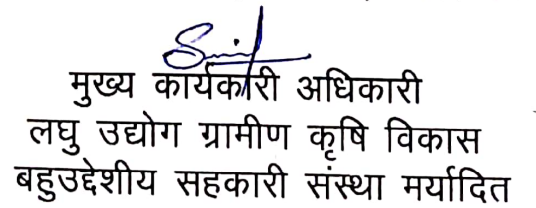 मुख्य कार्यकारी अधिकारी
लघु उद्योग ग्रामीण कृषि विकास
बहुउद्देशीय सहकारी संस्था मर्यादित